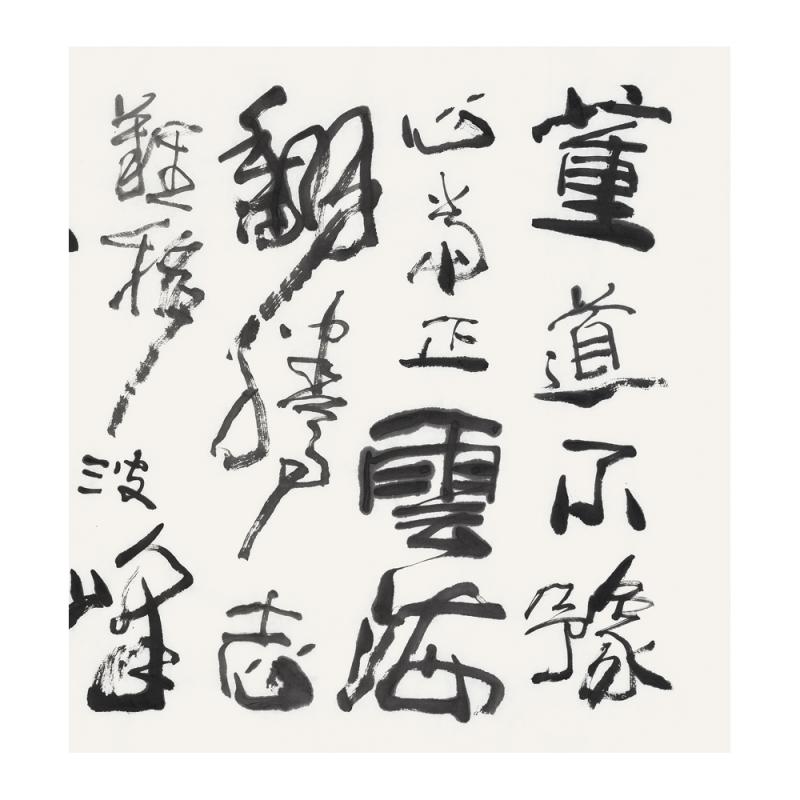 董道不豫
心常正雲海
翻騰志
難移波峰